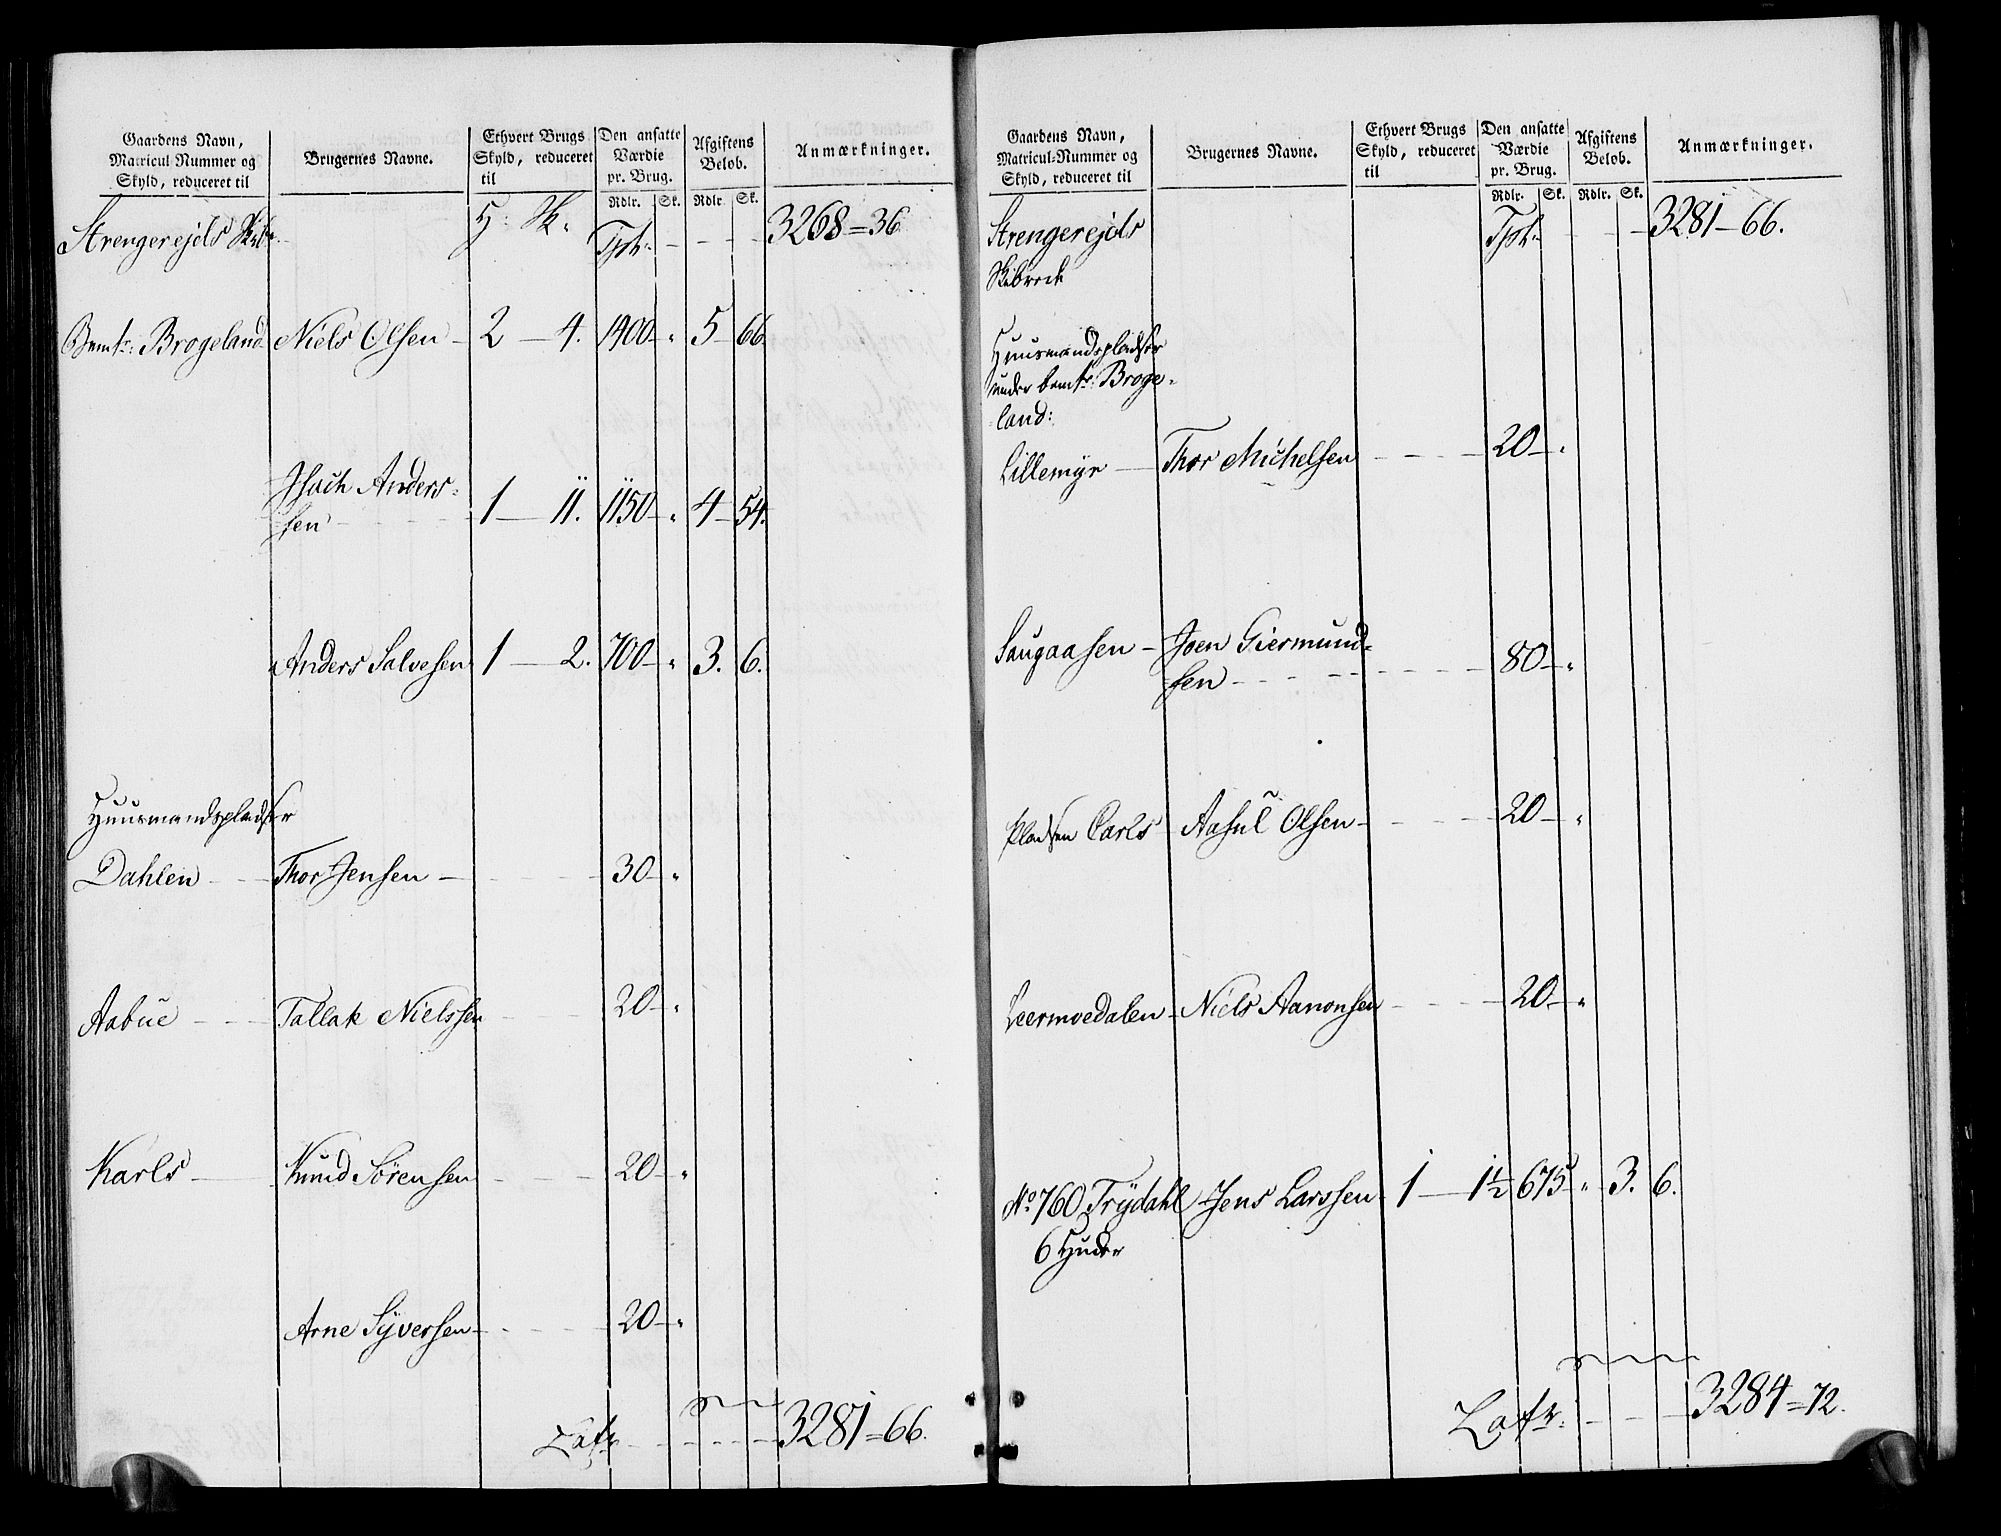 Gaardens Navn,
Matricul-Nummer og
Skyld, reduceret til
Brugernes Navne.
Ethvert Brugs
Skyld, reduceret
til
Den ansatte
Værdie
pr. Brug.
Rdlr. Sk.
Afgiftens
Beløb.
Rdlr. Sk.
Anmærkninger.
Strengerejds Skibr.
H: Sk. Tpt. - - - - 3268 = 36
Bemte: Brogeland Niels Olsen - 2 - 4. 1400 - " 5 - 66.
Isach Anders-
sen - - - 1 - 11. 1150 - " 4 - 54.
Anders Salvesen 1 - 2. 700 - " 3. 6.
Huusmandspladser
Dahlen - - Thor Jensen - - - - 30 - "
Aabue - - Tallak Nielssen - - - 20 - "
Karls - Knud Sørensen - - - 20 - "
Arne Syversen - - - - 20 - "
Latr. - - - - 3281 = 66.
Gaardens Navn,
Matricul-Nummer og
Skyld, reduceret til
Brugernes Navne.
Ethvert Brugs
Skyld, reduceret
til
Den ansatte
Værdie
pr. Brug.
Rdlr. Sk.
Afgiftens
Beløb.
Rdlr. Sk.
Anmærkninger.
Strengerejds
Skibrede
Tpt. - - - 3281 - 66.
Huusmandspladser
under bemte: Broge-
land:
Lillemyr - Thor Michelsen - - - 20 - "
Saugaasen - Joen Giermund-
sen - - - - - - 80 - "
Pladsen Carls Aasul Olsen - - - 20 - "
Leermoedalen - Niels Aanonsen - - - 20 - "
No 760 Trydahl Jens Larssen 1 - 1½ 675 - " 3. 6.
6 Huder
Latr. - - - 3284 = 72.